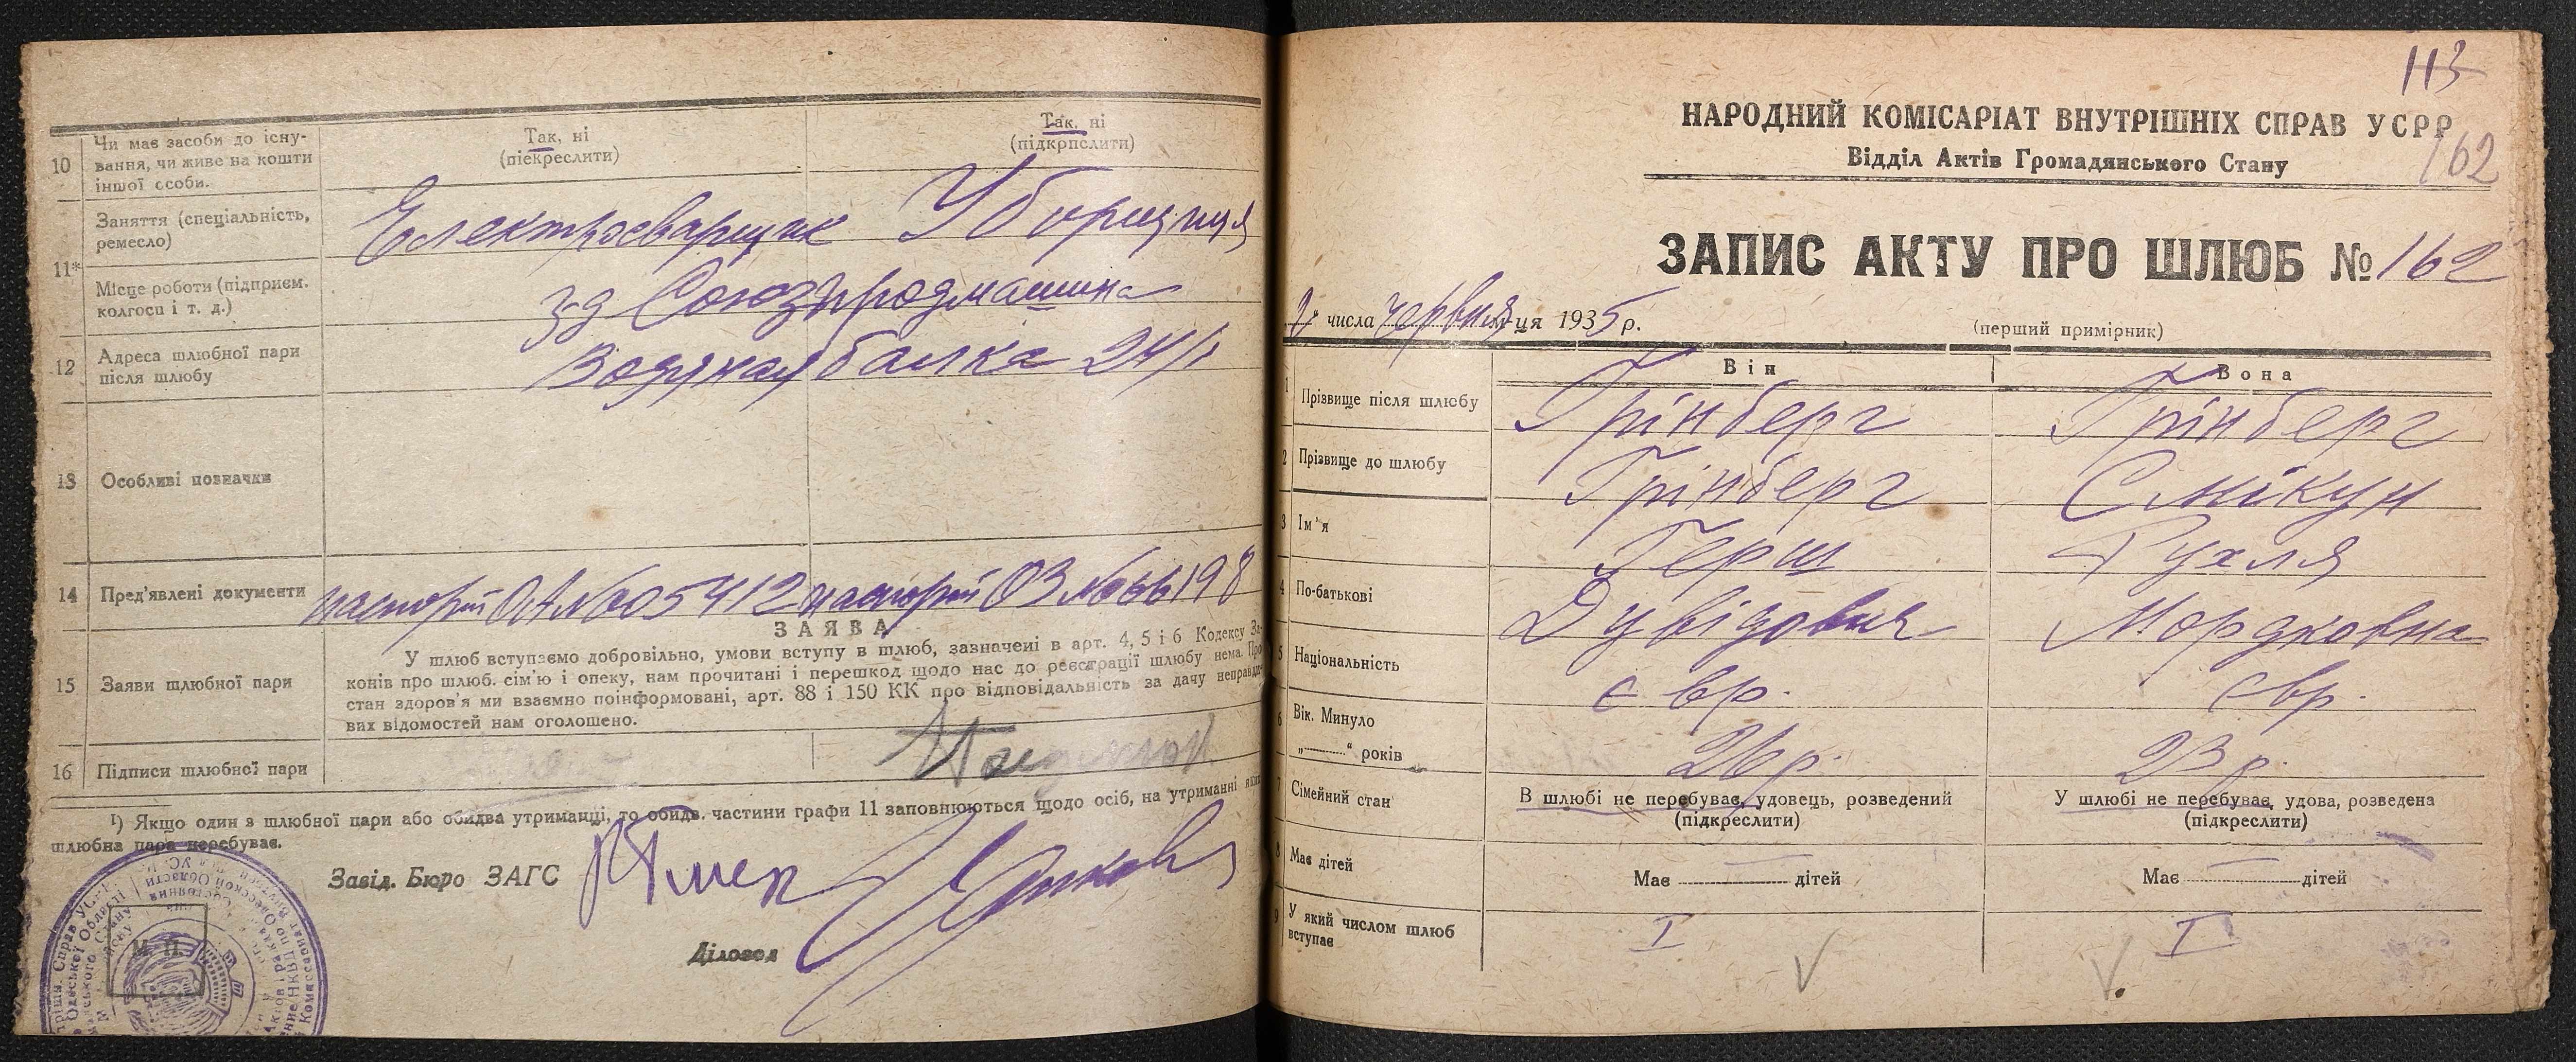 10 Чи має засоби до існу-
вання, чи живе на кошти
іншої особи.
Так, ні
(піекреслити)
Так, ні
(підкрпслити)
11* Заняття (спеціальність,
ремесло)
Електросварщик Уборщиця
Місце роботи (підприєм.
колгосп і т. д.)
з-д Союзпродмашина
12 Адреса шлюбної пари
після шлюбу
Водяная балка 24/1
13 Особливі позначки
14 Пред'явлені документи
паспорт ОА № 005412 паспорт ОЗ № 666198
15 Заяви шлюбної пари
ЗАЯВА
У шлюб вступаємо добровільно, умови вступу в шлюб, зазначені в арт. 4, 5 і 6 Кодексу За-
конів про шлюб. сім'ю і опеку, нам прочитані і перешкод щодо нас до реєстрації шлюбу нема. Про
стан здоров'я ми взаємно поінформовані, арт. 88 і 150 КК про відповідальність за дачу неправди-
вих відомостей нам оголошено.
16 Підписи шлюбної пари
¹) Якщо один з шлюбної пари або обидва утриманці, то обидв. частини графи 11 заповнюються щодо осіб, на утриманні яких
шлюбна пара перебуває.
Завід. Бюро ЗАГС
Діловод
М. П.
113
НАРОДНИЙ КОМІСАРІАТ ВНУТРІШНІХ СПРАВ УСРР
Відділ Актів Громадянського Стану
162
ЗАПИС АКТУ ПРО ШЛЮБ № 162
числа червня м-ця 1935 р.
(перший примірник)
Він Вона
1 Прізвище після шлюбу Грінберг Грінберг
2 Прізвище до шлюбу Грінберг Смікун
3 Ім'я Герш Рухля
4 По-батькові Дувідович Мордковна
5 Національність євр. євр.
6 Вік. Минуло
„ “ років 26 р. 23 р.
7 Сімейний стан
В шлюбі не перебуває, удовець, розведений
(підкреслити)
У шлюбі не перебуває, удова, розведена
(підкреслити)
8 Має дітей
Має — дітей
Має — дітей
9 У який числом шлюб
вступає
I I